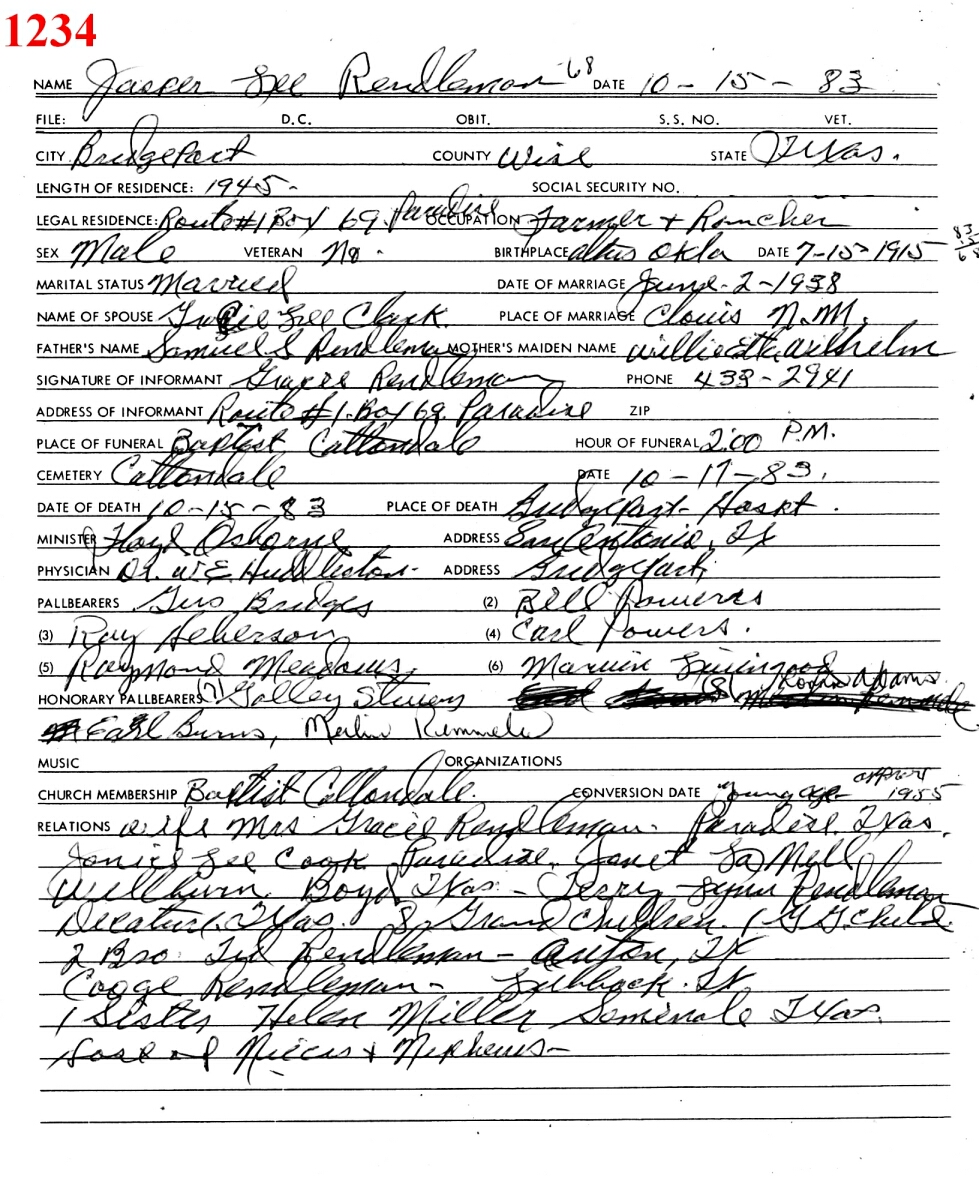 1234
NAME Jasper Lee Rendleman 68 DATE 10-15-83
FILE: D.C. OBIT. S.S. NO. VET.
CITY Bridgeport COUNTY Wise STATE Texas.
LENGTH OF RESIDENCE: 1945- SOCIAL SECURITY NO.
LEGAL RESIDENCE: Route #1 Box 69 Paradise OCCUPATION Farmer + Rancher
SEX Male VETERAN No - BIRTHPLACE altus Okla DATE 7-15-1915 83
68
MARITAL STATUS Married DATE OF MARRIAGE June-2-1938
NAME OF SPOUSE Gracie Lee Clark. PLACE OF MARRIAGE Clovis N.M.
FATHER'S NAME Samuel S Rendleman MOTHER'S MAIDEN NAME Willie Wilhelm
SIGNATURE OF INFORMANT Gracie Rendleman PHONE 433-2941
ADDRESS OF INFORMANT Route #1-Box 69 Paradise ZIP
PLACE OF FUNERAL Baptist Cottondale HOUR OF FUNERAL 2:00 P.M.
CEMETERY Cottondale DATE 10-17-83.
DATE OF DEATH 10-15-83 PLACE OF DEATH Bridgeport Hospt.
MINISTER Floyd Osborne ADDRESS San Antonio, Tx
PHYSICIAN Dr. W E Huddleston- ADDRESS Bridgeport
PALLBEARERS Bridges (2) Bill Powers
(3) Ray (4) Carl Powers.
(5) Raymond Meadows (6) Marvin Livingood
HONORARY PALLBEARERS (7) Stevens (8) Adams
Earl Burns, Merlin
MUSIC ORGANIZATIONS
CHURCH MEMBERSHIP Baptist Cottondale. CONVERSION DATE Young age 1955
RELATIONS wife Mrs Gracie Rendleman- Paradise, Texas,
Janice Lee Cook Paradise, Janet La Nell
Boyd Texas - Terry Lynn Rendleman
Decatur, Texas. 8 Grand Children. 1 G G Child.
2 Bro: Ted Rendleman - Anton, Tx
Rendleman - Lubbock Tx
1 Sister Helen Miller Seminole Texas.
of Nieces + Nephews-